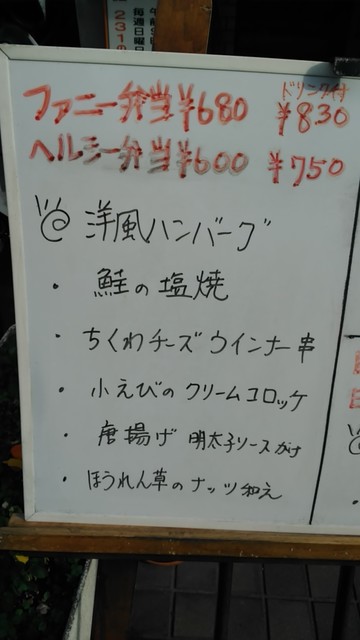 231の
毎週日曜日
ドリンク付
ファニー弁当¥680 ¥830
ヘルシー弁当¥600 ¥750
洋風ハンバーグ
・鮭の塩焼
・ちくわチーズウインナー串
・小えびのクリームコロッケ
・唐揚げ 明太子ソースがけ
・ほうれん草のナッツ和え